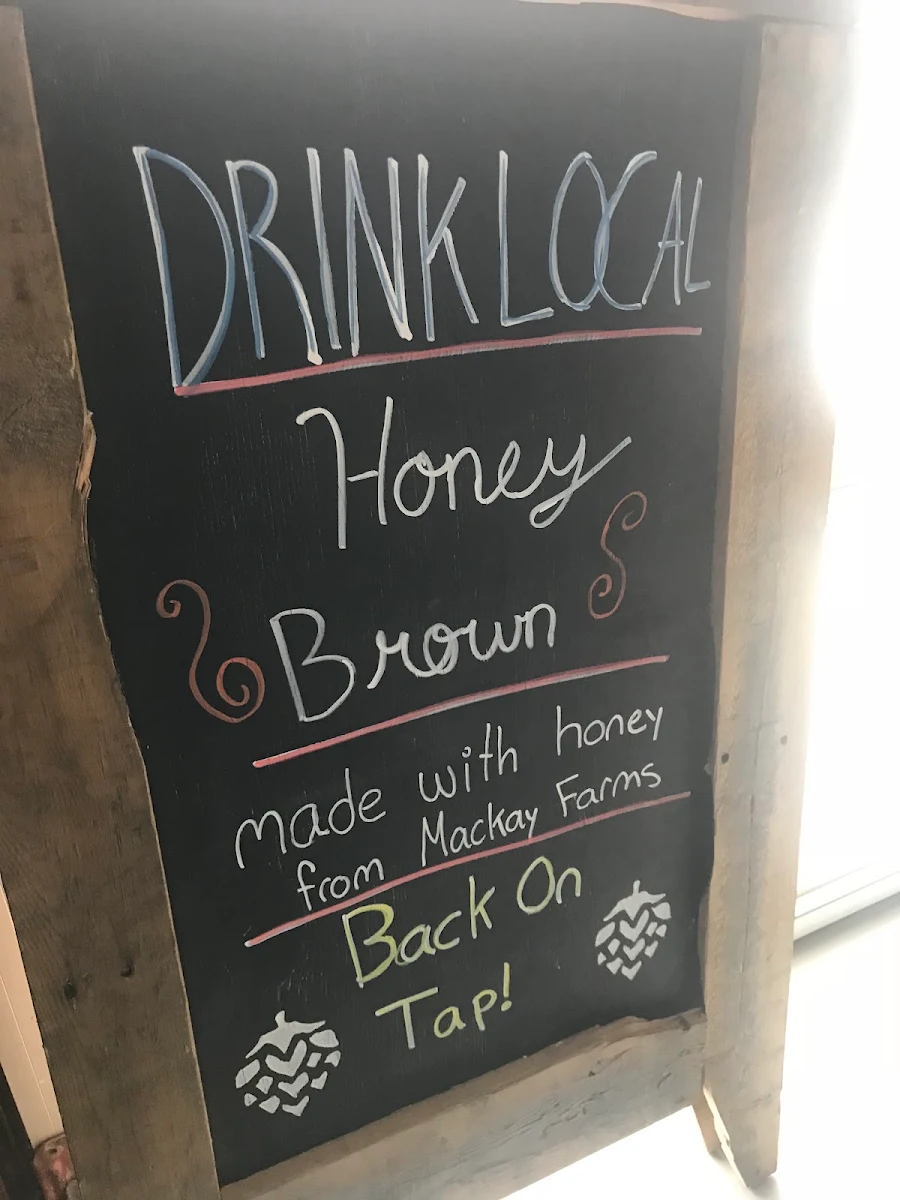 DRINK LOCAL
Honey
Brown
made with honey
from Mackay Farms
Back On
Tap!